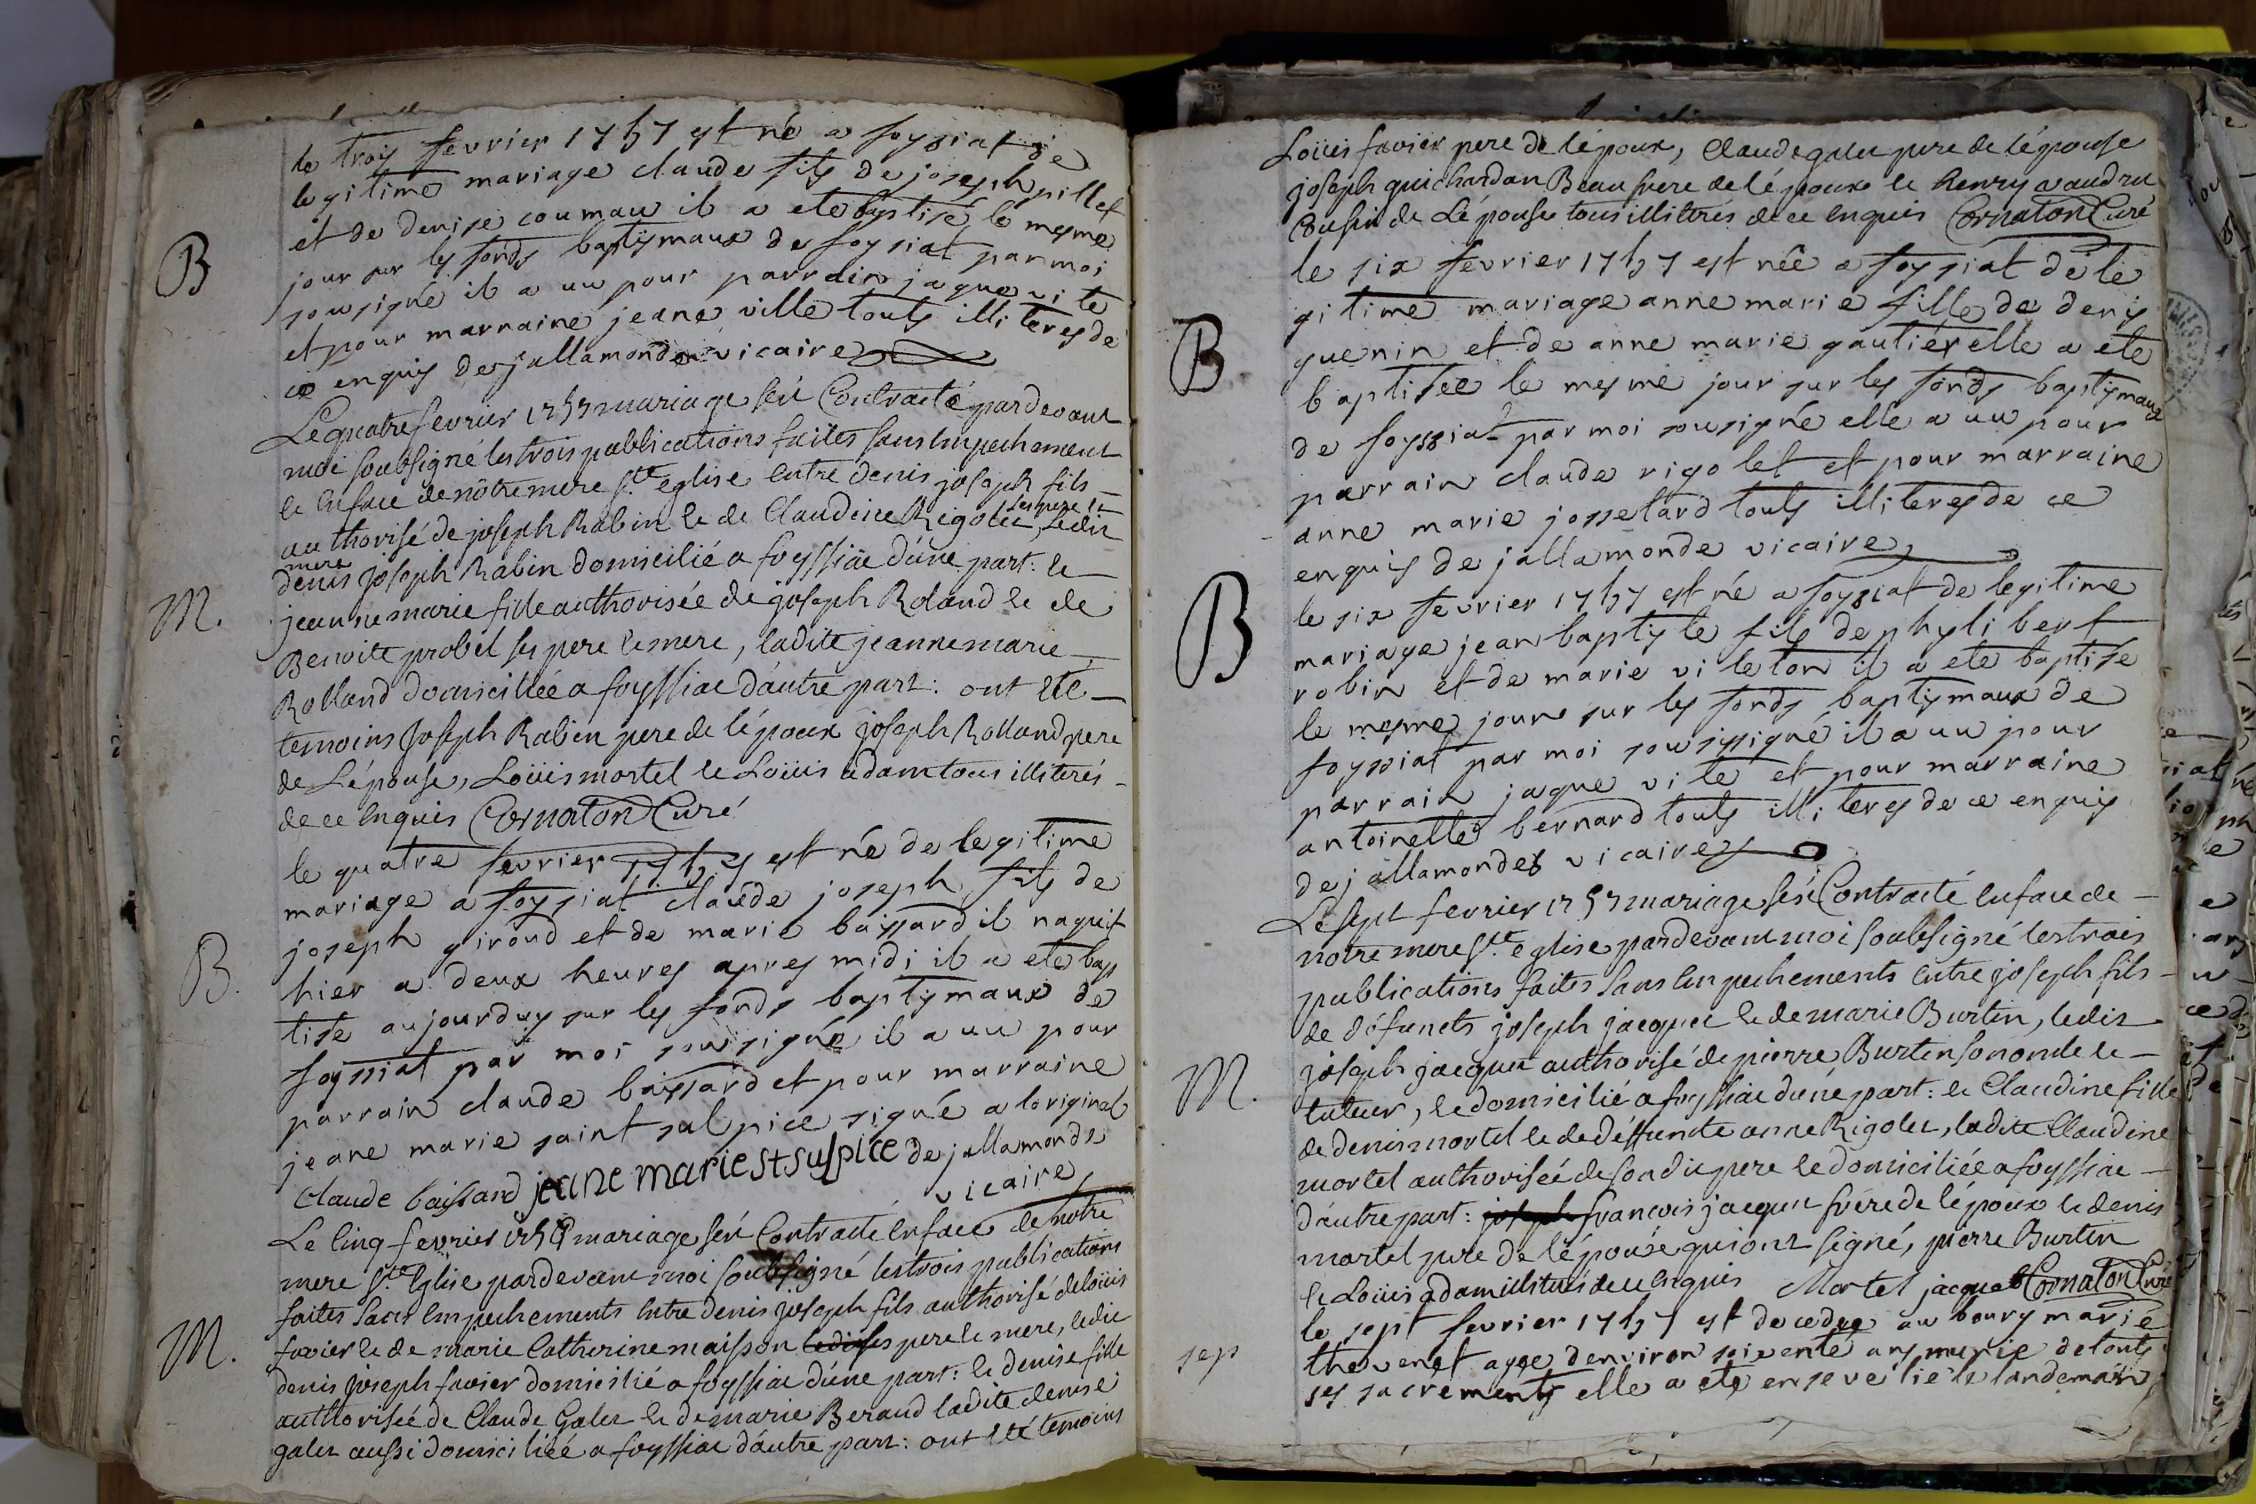 B
le trois fevrier 1757 est né a foyssiat de
legitime mariage claude fils de joseph pillet
et de denise coumau il a ete baptisé le mesme
jour sur les fonds baptismaux de foyssiat par moi
sousigné il a uu pour parrain jaque vite
et pour marraine jeane ville touts illiteres de
ce enquis dejallamonde vicaire
M.
Le quatre fevrier 1757 mariage feū Contracté pardevant
moi soubsigné les trois publications faites sans Empechement
le Enface de nôtre mere ste eglise entre denis joseph fils
authorisé de joseph Rabin le de Claudine Rigolet, ses pere et ledit
mere
denis joseph Rabin domicilié a foyssiac d'une part: le
jeanne marie fille authorisée de joseph Roland le de
Benoite probel ses pere le mere, ladite jeanne marie
Rolland domiciliée a foyssiac d'autre part: ont été
temoins joseph Rabin pere de l'époux joseph Rolland pere
de L'épouse, Loüis mortel le Loüis adam tous illiterés
de ce Enquis Cornaton Curé
B.
le quatre fevrier 1757 est né de legitime
mariage a foyssiat claude joseph fils de
joseph giroud et de marie baissard il naquit
hier a deux heures apres midi il a ete bap
tise aujourduy sur les fonds baptismaux de
foyssiat par moi sousigné il a uu pour
parrain claude baissard et pour marraine
jeane marie saint sulpice signé a loriginal
Claude baissard jeane marie st sulpice dejallamonde
vicaire
M.
Le Cinq fevrier 1757 mariage feū Contracté Enface de notre
mere ste Eglise pardevant moi soubsigné les trois publications
faites sans Empechements Entre denis joseph fils authorisé de loüis
favier le de marie Catherine maisson ses pere le mere, ledit
denis joseph favier domicilié a foyssiac d'une part: le denise fille
authorisée de Claude Galet le de marie Beraud ladite denise
galet aussi domiciliée a foyssiac d'autre part: ont été temoins
Loüis favier pere de l'époux, Claude galet pere de l'épouse
joseph guichardan Beaufrere de l'époux le henry vaudru
Cousin de L'épouse tous illitérés de ce Enquis Cornaton Curé
B
le six fevrier 1757 est née a foyssiat de le
gitime mariage anne marie fille de denis
guenin et de anne marie gautiér elle a ete
baptisée le mesme jour sur les fonds baptismaux
de foyssiat par moi sousigné elle a uu pour
parrain claude rigolet et pour marraine
anne marie josselard touts illiteres de ce
enquis dejallamonde vicaire
B
le six fevrier 1757 est né a foyssiat de legitime
mariage jean baptiste fils de phylibert
robin et de marie vileton il a ete baptise
le mesme jour sur les fonds baptismaux de
foyssiat par moi soussigné il a uu pour
parrain jaque vite et pour marraine
antoinette bernard touts illiteres de ce enquis
dejallamondes vicaire
M.
Le sept fevrier 1757 mariage feū Contracté Enface de
notre mere ste eglise pardevant moi soubsigné les trois
publications faites sans Empechements Entre joseph fils
de défuncts joseph jacquet le de marie Burtin, ledit
joseph jacquet authorisé de pierre Burtin son oncle le
tuteur, le domicilié a foyssiac d'une part: le Claudine fille
de denis mortel le de déffuncte anne Rigolet, ladite Claudine
mortel authorisée de son dit pere le domiciliée a foyssiac
d'autre part: joseph francois jacquet frere de l'époux le denis
mortel pere de l'épouse qui ont signé, pierre Burtin
le Loüis adam illitérés de ce Enquis Mortel jacquet Cornaton Curé
sep
le sept fevrier 1757 est decedee au bourg marie
thevenet agee denviron soixente ans munie de touts
ses sacrements elle a ete ensevelie le landemain